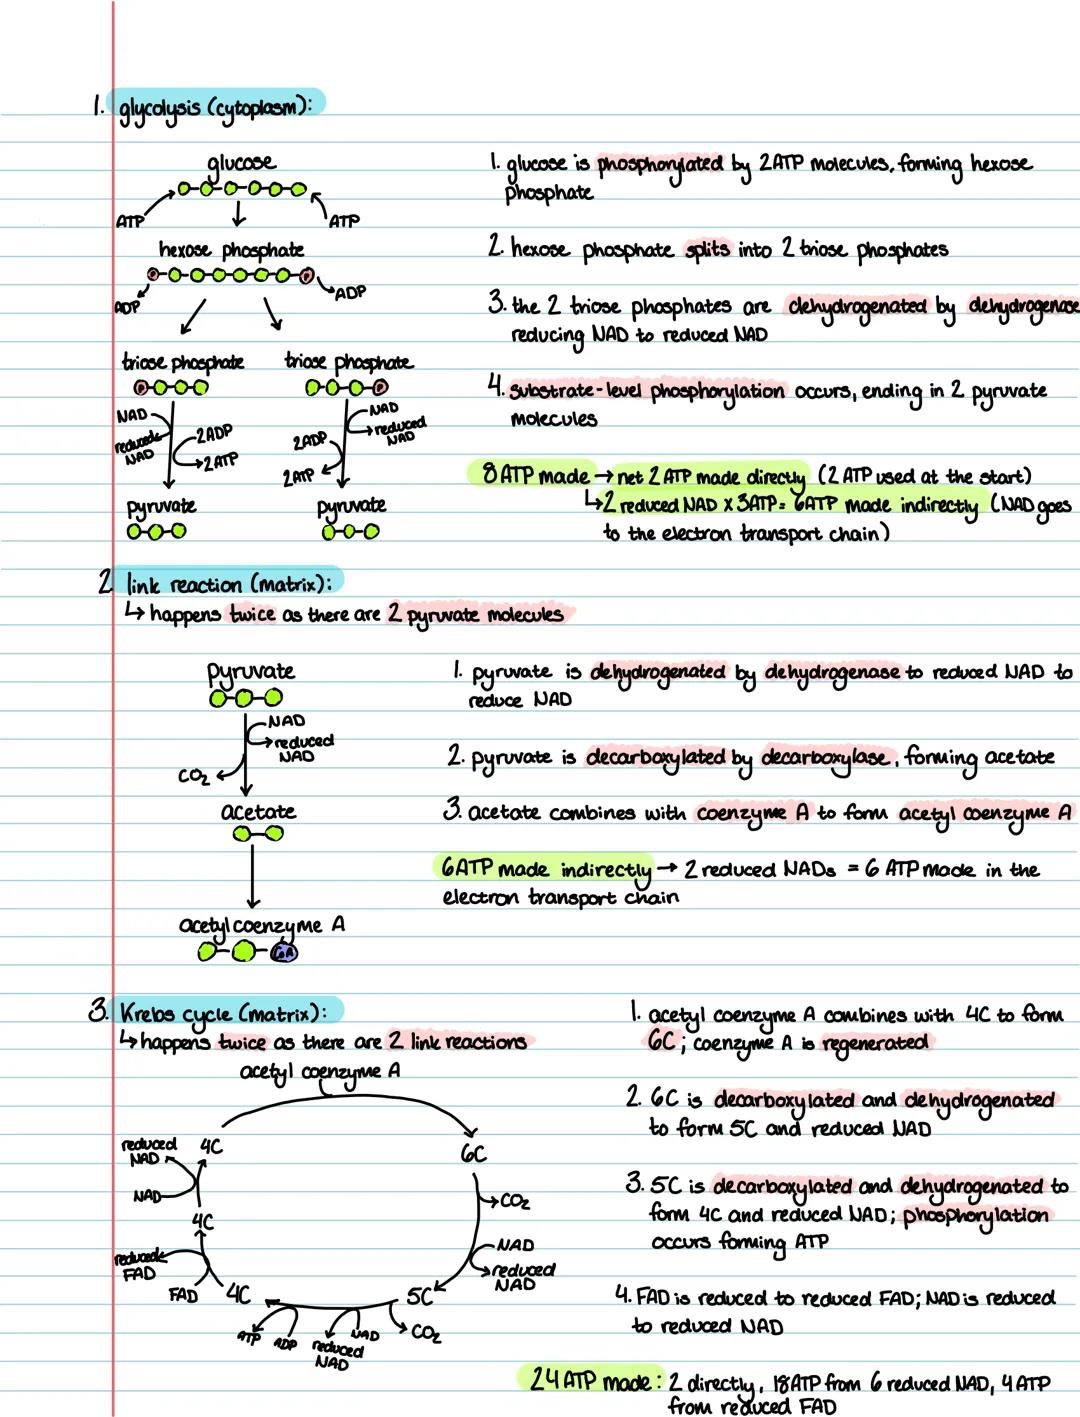 1. glycolysis (cytoplasm):
glucose
ATP
ATP
hexose phosphate
ADP
ADP
triose phosphate
triose phosphate
NAD
reduced NAD
2ADP
2ATP
NAD
reduced NAD
2ADP
2ATP
pyruvate
pyruvate
1. glucose is phosphorylated by 2ATP molecules, forming hexose
phosphate
2. hexose phosphate splits into 2 triose phosphates
3. the 2 triose phosphates are dehydrogenated by dehydrogenase
reducing NAD to reduced NAD
4. substrate-level phosphorylation occurs, ending in 2 pyruvate
molecules
8 ATP made → net 2 ATP made directly (2 ATP used at the start)
↳ 2 reduced NAD x 3ATP = 6ATP made indirectly (NAD goes
to the electron transport chain)
2 link reaction (matrix):
↳ happens twice as there are 2 pyruvate molecules
pyruvate
NAD
reduced
NAD
CO2
acetate
acetyl coenzyme A
CoA
1. pyruvate is dehydrogenated by dehydrogenase to reduced NAD to
reduce NAD
2. pyruvate is decarboxylated by decarboxylase, forming acetate
3. acetate combines with coenzyme A to form acetyl coenzyme A
6ATP made indirectly → 2 reduced NADs = 6 ATP made in the
electron transport chain
3. Krebs cycle (matrix):
↳ happens twice as there are 2 link reactions
acetyl coenzyme A
4C
6C
reduced
NAD
NAD
CO2
4C
NAD
reduced
NAD
reduced
FAD
FAD
4C
5C
ATP
ADP
reduced
NAD
NAD
CO2
1. acetyl coenzyme A combines with 4C to form
6C; coenzyme A is regenerated
2. 6C is decarboxylated and dehydrogenated
to form 5C and reduced NAD
3. 5C is decarboxylated and dehydrogenated to
form 4C and reduced NAD; phosphorylation
occurs forming ATP
4. FAD is reduced to reduced FAD; NAD is reduced
to reduced NAD
24 ATP made: 2 directly, 18 ATP from 6 reduced NAD, 4 ATP
from reduced FAD